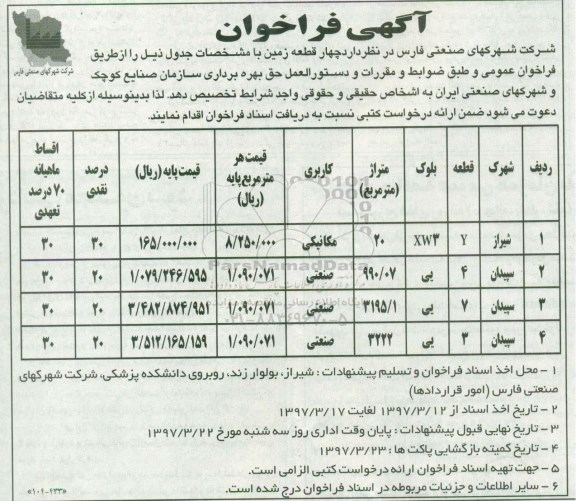 آگهی فراخوان
شرکت شهرکهای صنعتی فارس
شرکت شهرکهای صنعتی فارس در نظر دارد چهار قطعه زمین با مشخصات جدول ذیل را از طریق
فراخوان عمومی و طبق ضوابط و مقررات و دستورالعمل حق بهره برداری سازمان صنایع کوچک
و شهرکهای صنعتی ایران به اشخاص حقیقی و حقوقی واجد شرایط تخصیص دهد. لذا بدینوسیله از کلیه متقاضیان
دعوت می شود ضمن ارائه درخواست کتبی نسبت به دریافت اسناد فراخوان اقدام نمایند.
ردیف شهرک قطعه بلوک متراژ (مترمربع) کاربری قیمت هر مترمربع پایه (ریال) قیمت پایه (ریال) درصد نقدی اقساط ماهیانه ۷۰ درصد تعهدی
۱ شیراز Y XW۳ ۲۰ مکانیکی ۸/۲۵۰/۰۰۰ ۱۶۵/۰۰۰/۰۰۰ ۳۰ ۳۰
۲ سپیدان ۴ پی ۹۹۰/۰۷ صنعتی ۱/۰۹۰/۰۷۱ ۱/۰۷۹/۲۴۶/۵۹۵ ۲۰ ۳۰
۳ سپیدان ۷ پی ۳۱۹۵/۱ صنعتی ۱/۰۹۰/۰۷۱ ۳/۴۸۲/۸۷۴/۹۵۱ ۲۰ ۳۰
۴ سپیدان ۳ پی ۳۲۲۲ صنعتی ۱/۰۹۰/۰۷۱ ۳/۵۱۲/۱۶۵/۱۵۹ ۲۰ ۳۰
ParsNamadData
۰۲۱-۸۸۳۴۹۶۷۰-۵
۱ - محل اخذ اسناد فراخوان و تسلیم پیشنهادات : شیراز، بولوار زند، روبروی دانشکده پزشکی، شرکت شهرکهای
صنعتی فارس (امور قراردادها)
۲ - تاریخ اخذ اسناد از ۱۳۹۷/۳/۱۲ لغایت ۱۳۹۷/۳/۱۷
۳ - تاریخ نهایی قبول پیشنهادات : پایان وقت اداری روز سه شنبه مورخ ۱۳۹۷/۳/۲۲
۴ - تاریخ کمیته بازگشایی پاکت ها : ۱۳۹۷/۳/۲۳
۵ - جهت تهیه اسناد فراخوان ارائه درخواست کتبی الزامی است.
۶ - سایر اطلاعات و جزئیات مربوطه در اسناد فراخوان درج شده است.
«۱۰۲-۲۳۳»